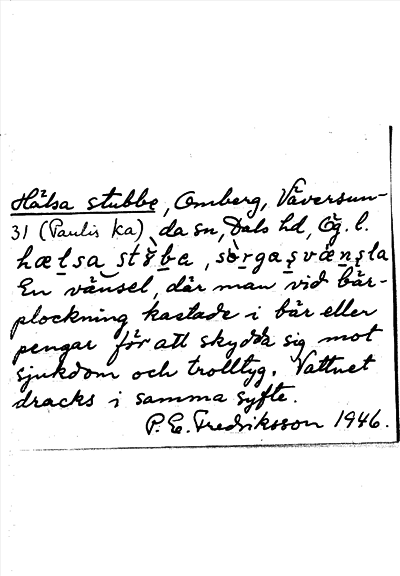 Hälsa stubbe, Omberg, Väversun-
31 (Paulis ka) da sn, Dals hd, Ög. l.
hælsa stɞba, særgasvænsla
En vänsel, där man vid bär-
plockning kastade i bär eller
pengar för att skydda sig mot
sjukdom och trolltyg. Vattnet
dracks i samma syfte.
P. E. Fredriksson 1946.